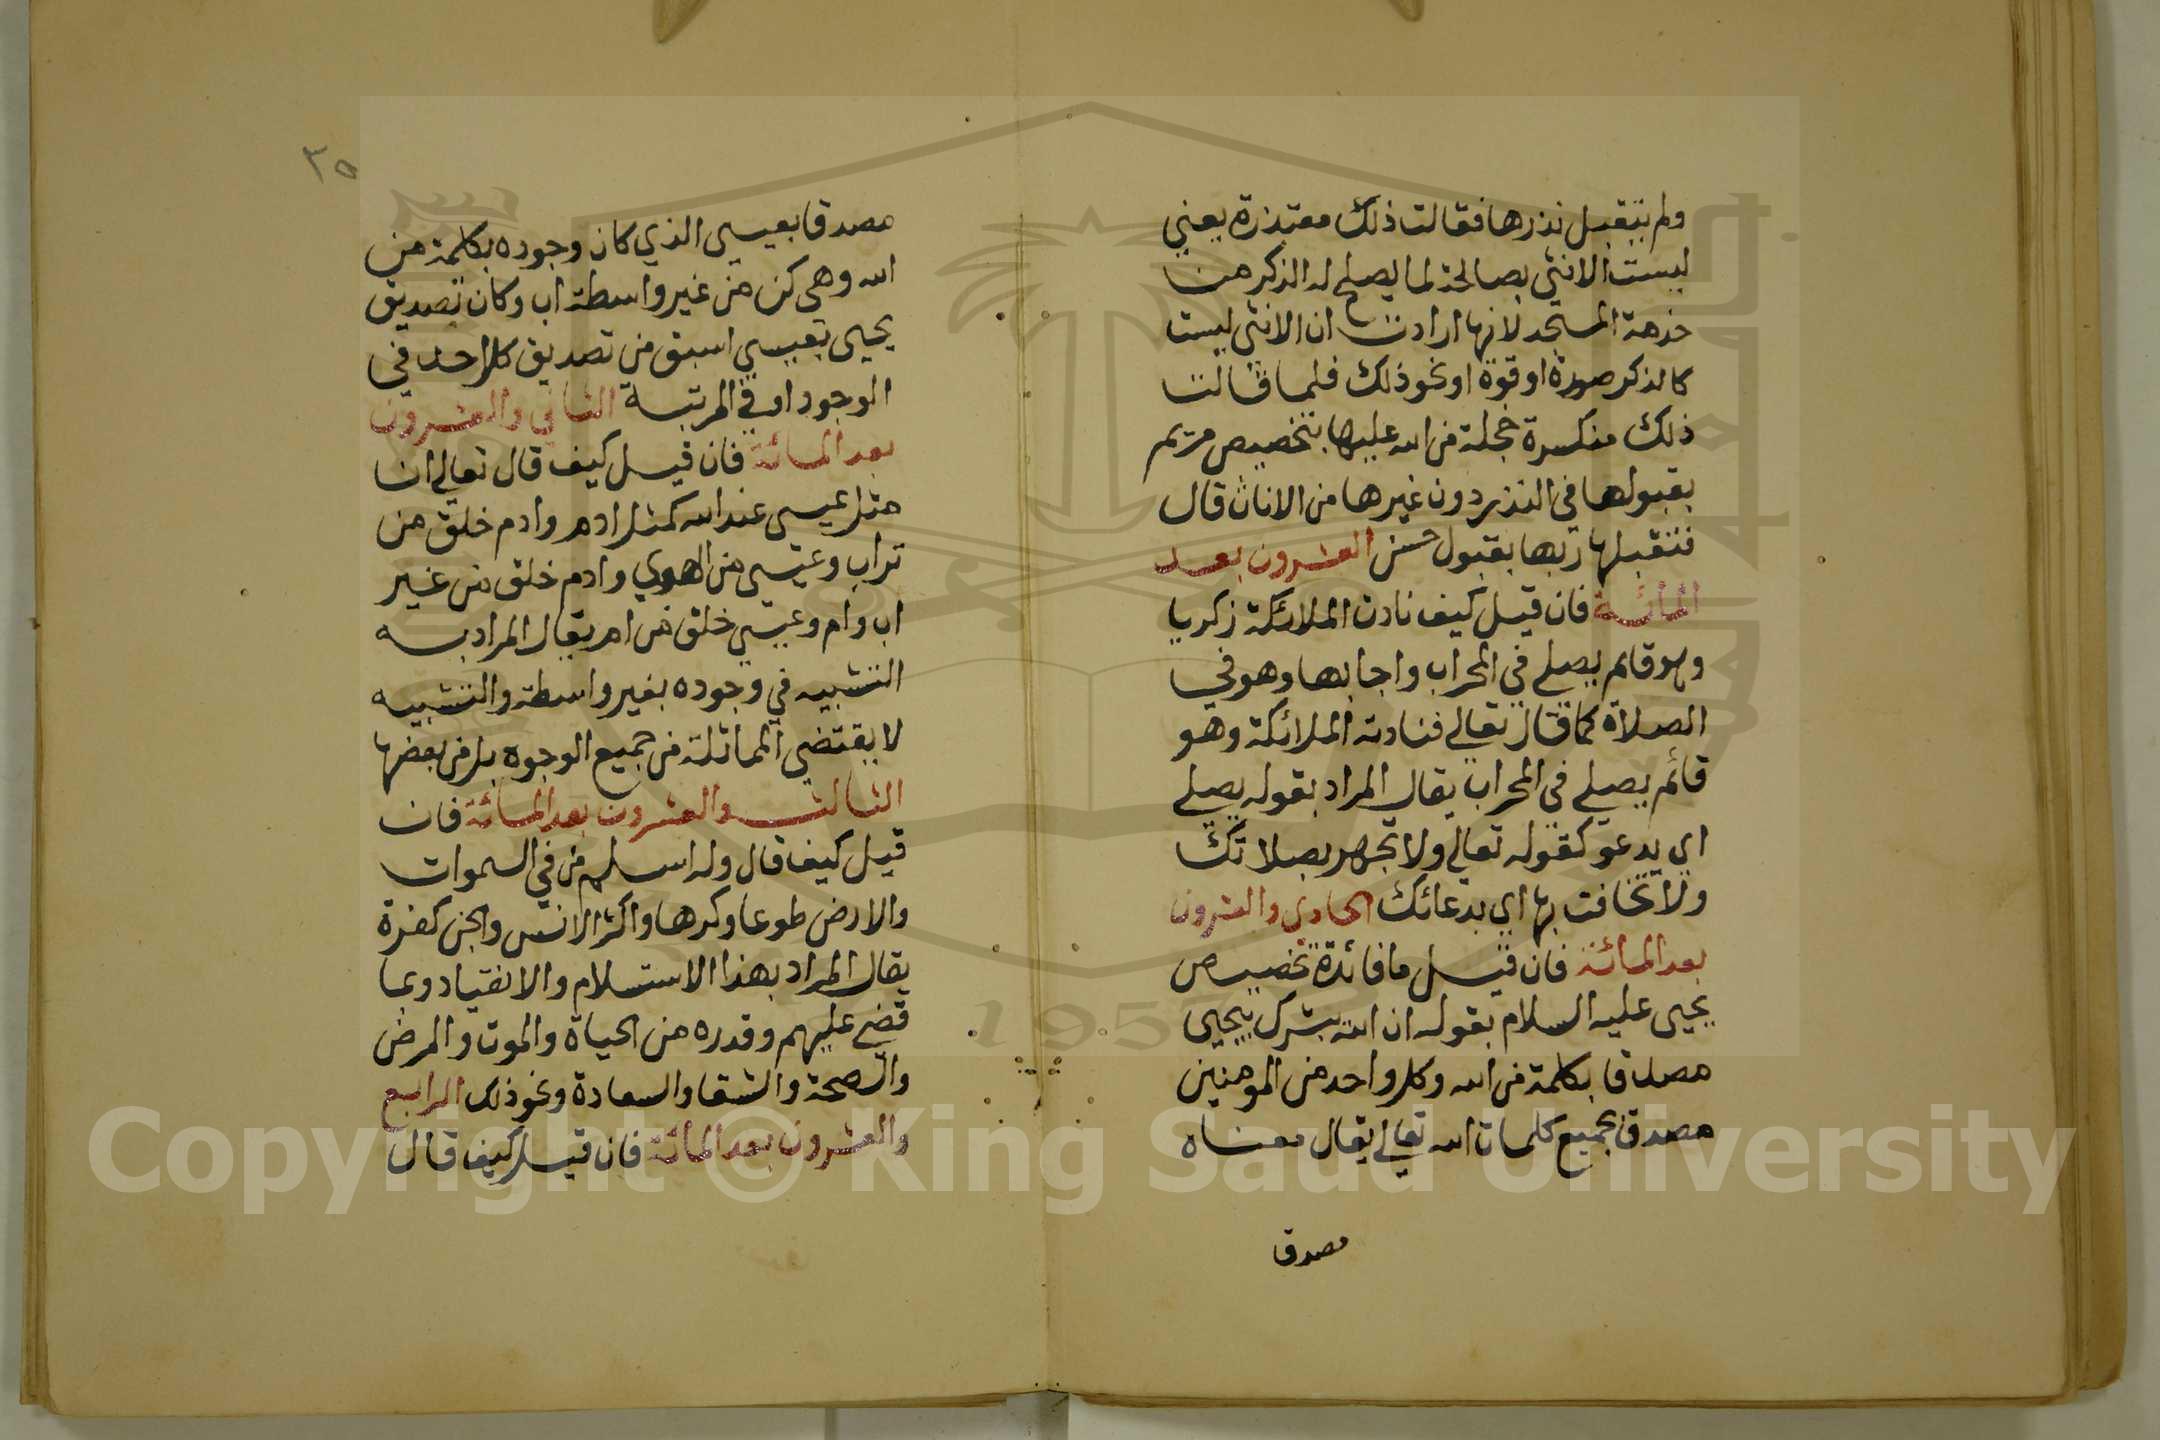 ولم يتقبل نذرها فقالت ذلك معتذرة يعني
ليست الانثى بصالحة لما يصلح له الذكر من
خدمة المسجد لانها ارادت ان الانثى ليست
كالذكر صورة او قوة او نحو ذلك فلما قالت
ذلك منكسرة خجلة من الله عليها بتخصيص مريم
بقبولها في النذر دون غيرها من الاناث قال
فتقبلها ربها بقبول حسن العشرون بعد
المائة فان قيل كيف نادت الملائكة زكريا
وهو قائم يصلي في المحراب واجابها وهو في
الصلاة كما قال تعالى فنادته الملائكة وهو
قائم يصلي في المحراب يقال المراد بقوله يصلي
اي يدعو كقوله تعالى ولا تجهر بصلاتك
ولا تخافت بها اي بدعائك الحادي والعشرون
بعد المائة فان قيل ما فائدة تخصيص
يحيى عليه السلام بقوله ان الله يبشرك بيحيى
مصدقا بكلمة من الله وكل واحد من المومنين
مصدق بجميع كلمات الله تعالى يقال معناه
مصدقا
٢٥
مصدقا بعيسى الذي كان وجوده بكلمة من
الله وهي كن من غير واسطة اب وكان تصديق
يحيى بعيسى اسبق من تصديق كل احد في
الوجود او في المرتبة الثاني والعشرون
بعد المائة فان قيل كيف قال تعالى ان
مثل عيسى عند الله كمثل ادم وادم خلق من
تراب وعيسى من الهوي وادم خلق من غير
اب وام وعيسى خلق من ام يقال المراد به
التشبيه في وجوده بغير واسطة والتشبيه
لا يقتضي المماثلة من جميع الوجوه بل من بعضها
الثالث والعشرون بعد المائة فان
قيل كيف قال وله اسلم من في السموات
والارض طوعا وكرها واكثر الانس والجن كفرة
يقال المراد بهذا الاستسلام والانقياد وبما
قضى عليهم وقدره من الحياة والموت والمرض
والصحة والشقا والسعادة ونحو ذلك الرابع
والعشرون بعد المائة فان قيل كيف قال
Copyright © King Saud University
1957